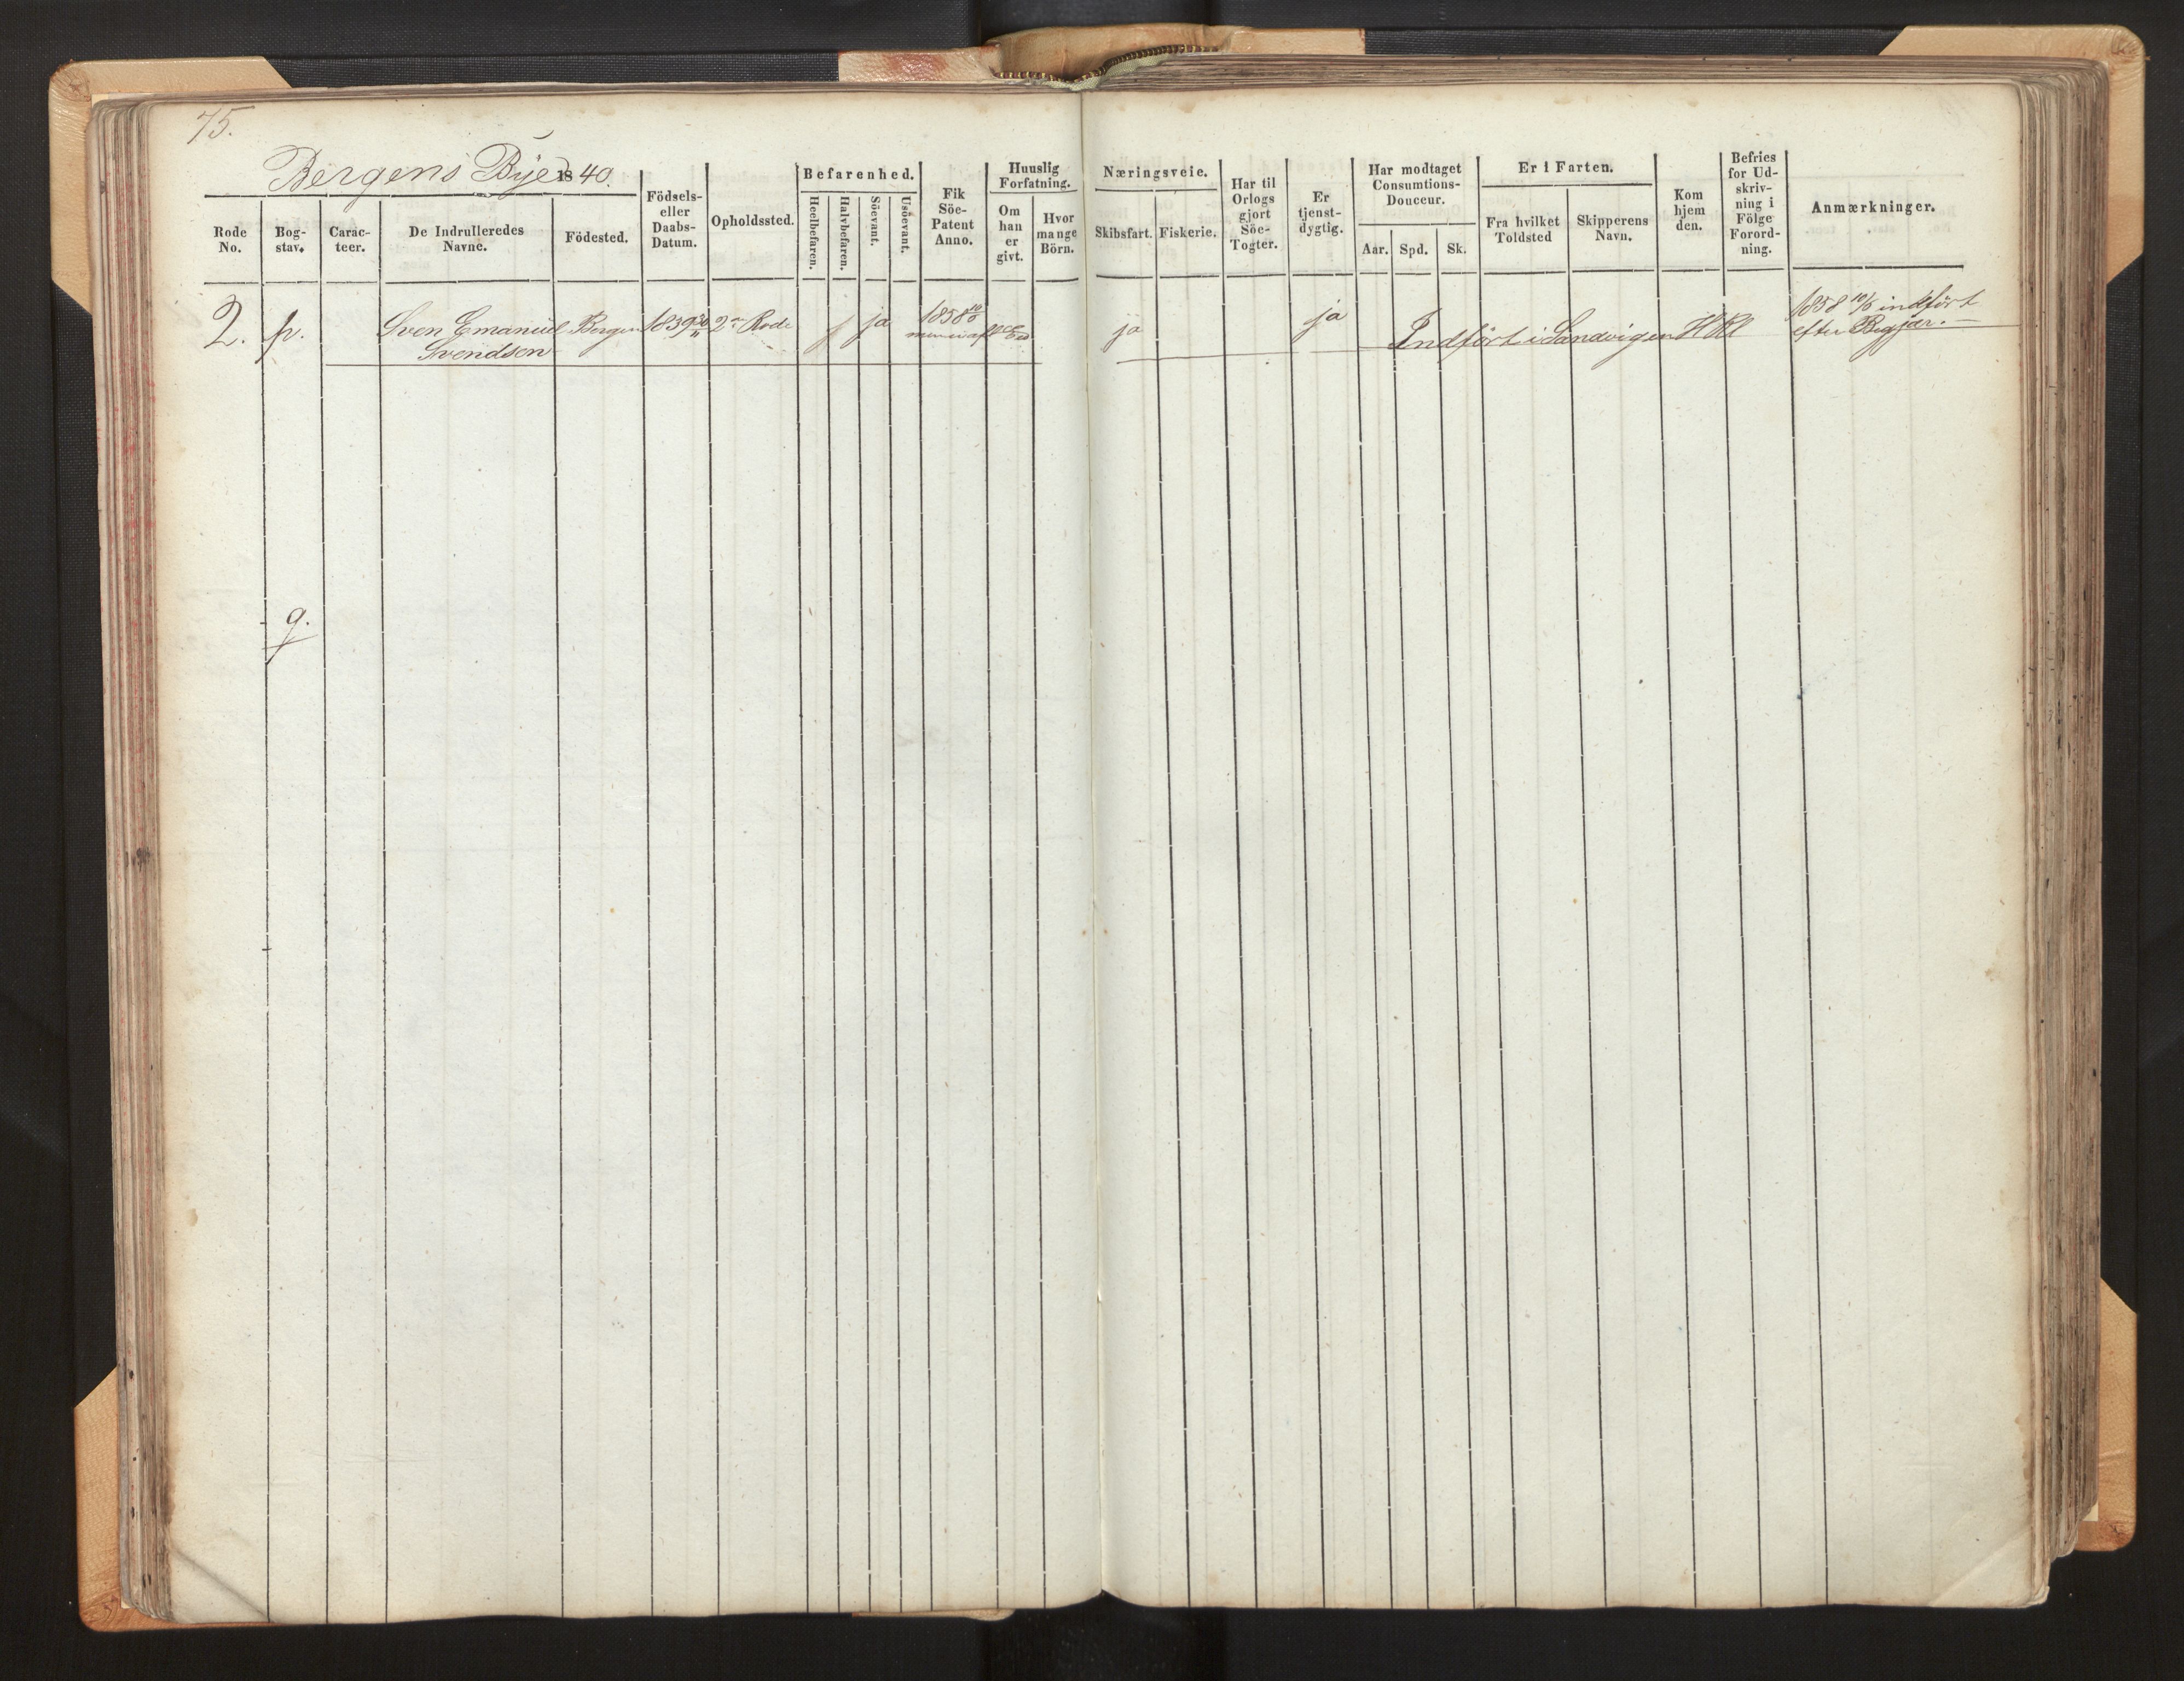 75.
Bergens Bÿe 1840.
Rode No.
Bog-stav.
Carac-teer.
De Indrulleredes Navne.
Födested.
Födsels- eller Daabs-Datum.
Opholdssted.
Befarenhed.
Heelbefaren.
Halvbefaren.
Söevant.
Usöevant.
Fik Söe-Patent Anno.
Huuslig Forfatning.
Om han er givt.
Hvor mange Börn.
Næringsveie.
Skibsfart.
Fiskerie.
Har til Orlogs gjort Söe-Togter.
Er tjenst-dygtig.
Har modtaget Consumtions-Douceur.
Aar.
Spd.
Sk.
Er i Farten.
Fra hvilket Toldsted
Skipperens Navn.
Kom hjem den.
Befries for Ud-skriv-ning i Fölge Forord-ning.
Anmærkninger.
2. p. Sven Emanuel Bergen 1839 2n Rode ja 1858 10/6 ja ja Indfört i Sandvigen HRl 1858 10/6 indfört
Svendsen efter Begjær.
q.